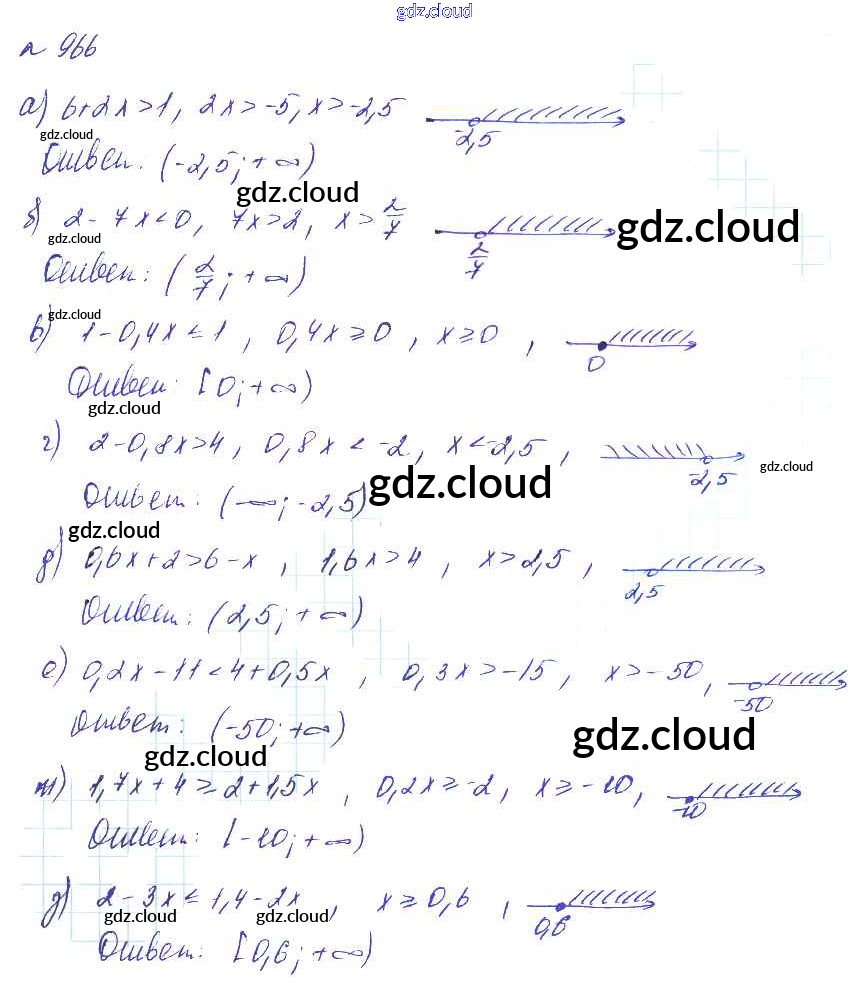 gdz.cloud
n 966
а) 6+2x>1, 2x>-5, x>-2,5 -2,5
gdz.cloud
Ответ: (-2,5; +∞)
gdz.cloud
б) 2-7x<0, 7x>2, x>2/7 2/7 gdz.cloud
gdz.cloud
Ответ: (2/7; +∞)
gdz.cloud
в) 1-0,4x≤1, 0,4x≥0, x≥0, 0
Ответ: [0; +∞)
gdz.cloud
г) 2-0,8x>4, 0,8x<-2, x<-2,5, -2,5 gdz.cloud
Ответ: (-∞; -2,5) gdz.cloud
gdz.cloud
д) 0,6x+2>6-x, 1,6x>4, x>2,5, 2,5
Ответ: (2,5; +∞)
е) 0,2x-11<4+0,5x, 0,3x>-15, x>-50, -50
Ответ: (-50; +∞) gdz.cloud
gdz.cloud
ж) 1,7x+4≥2+1,5x, 0,2x≥-2, x≥-10, -10
Ответ: [-10; +∞)
з) 2-3x≤1,4-2x, x≥0,6, 0,6
gdz.cloud gdz.cloud
Ответ: [0,6; +∞)